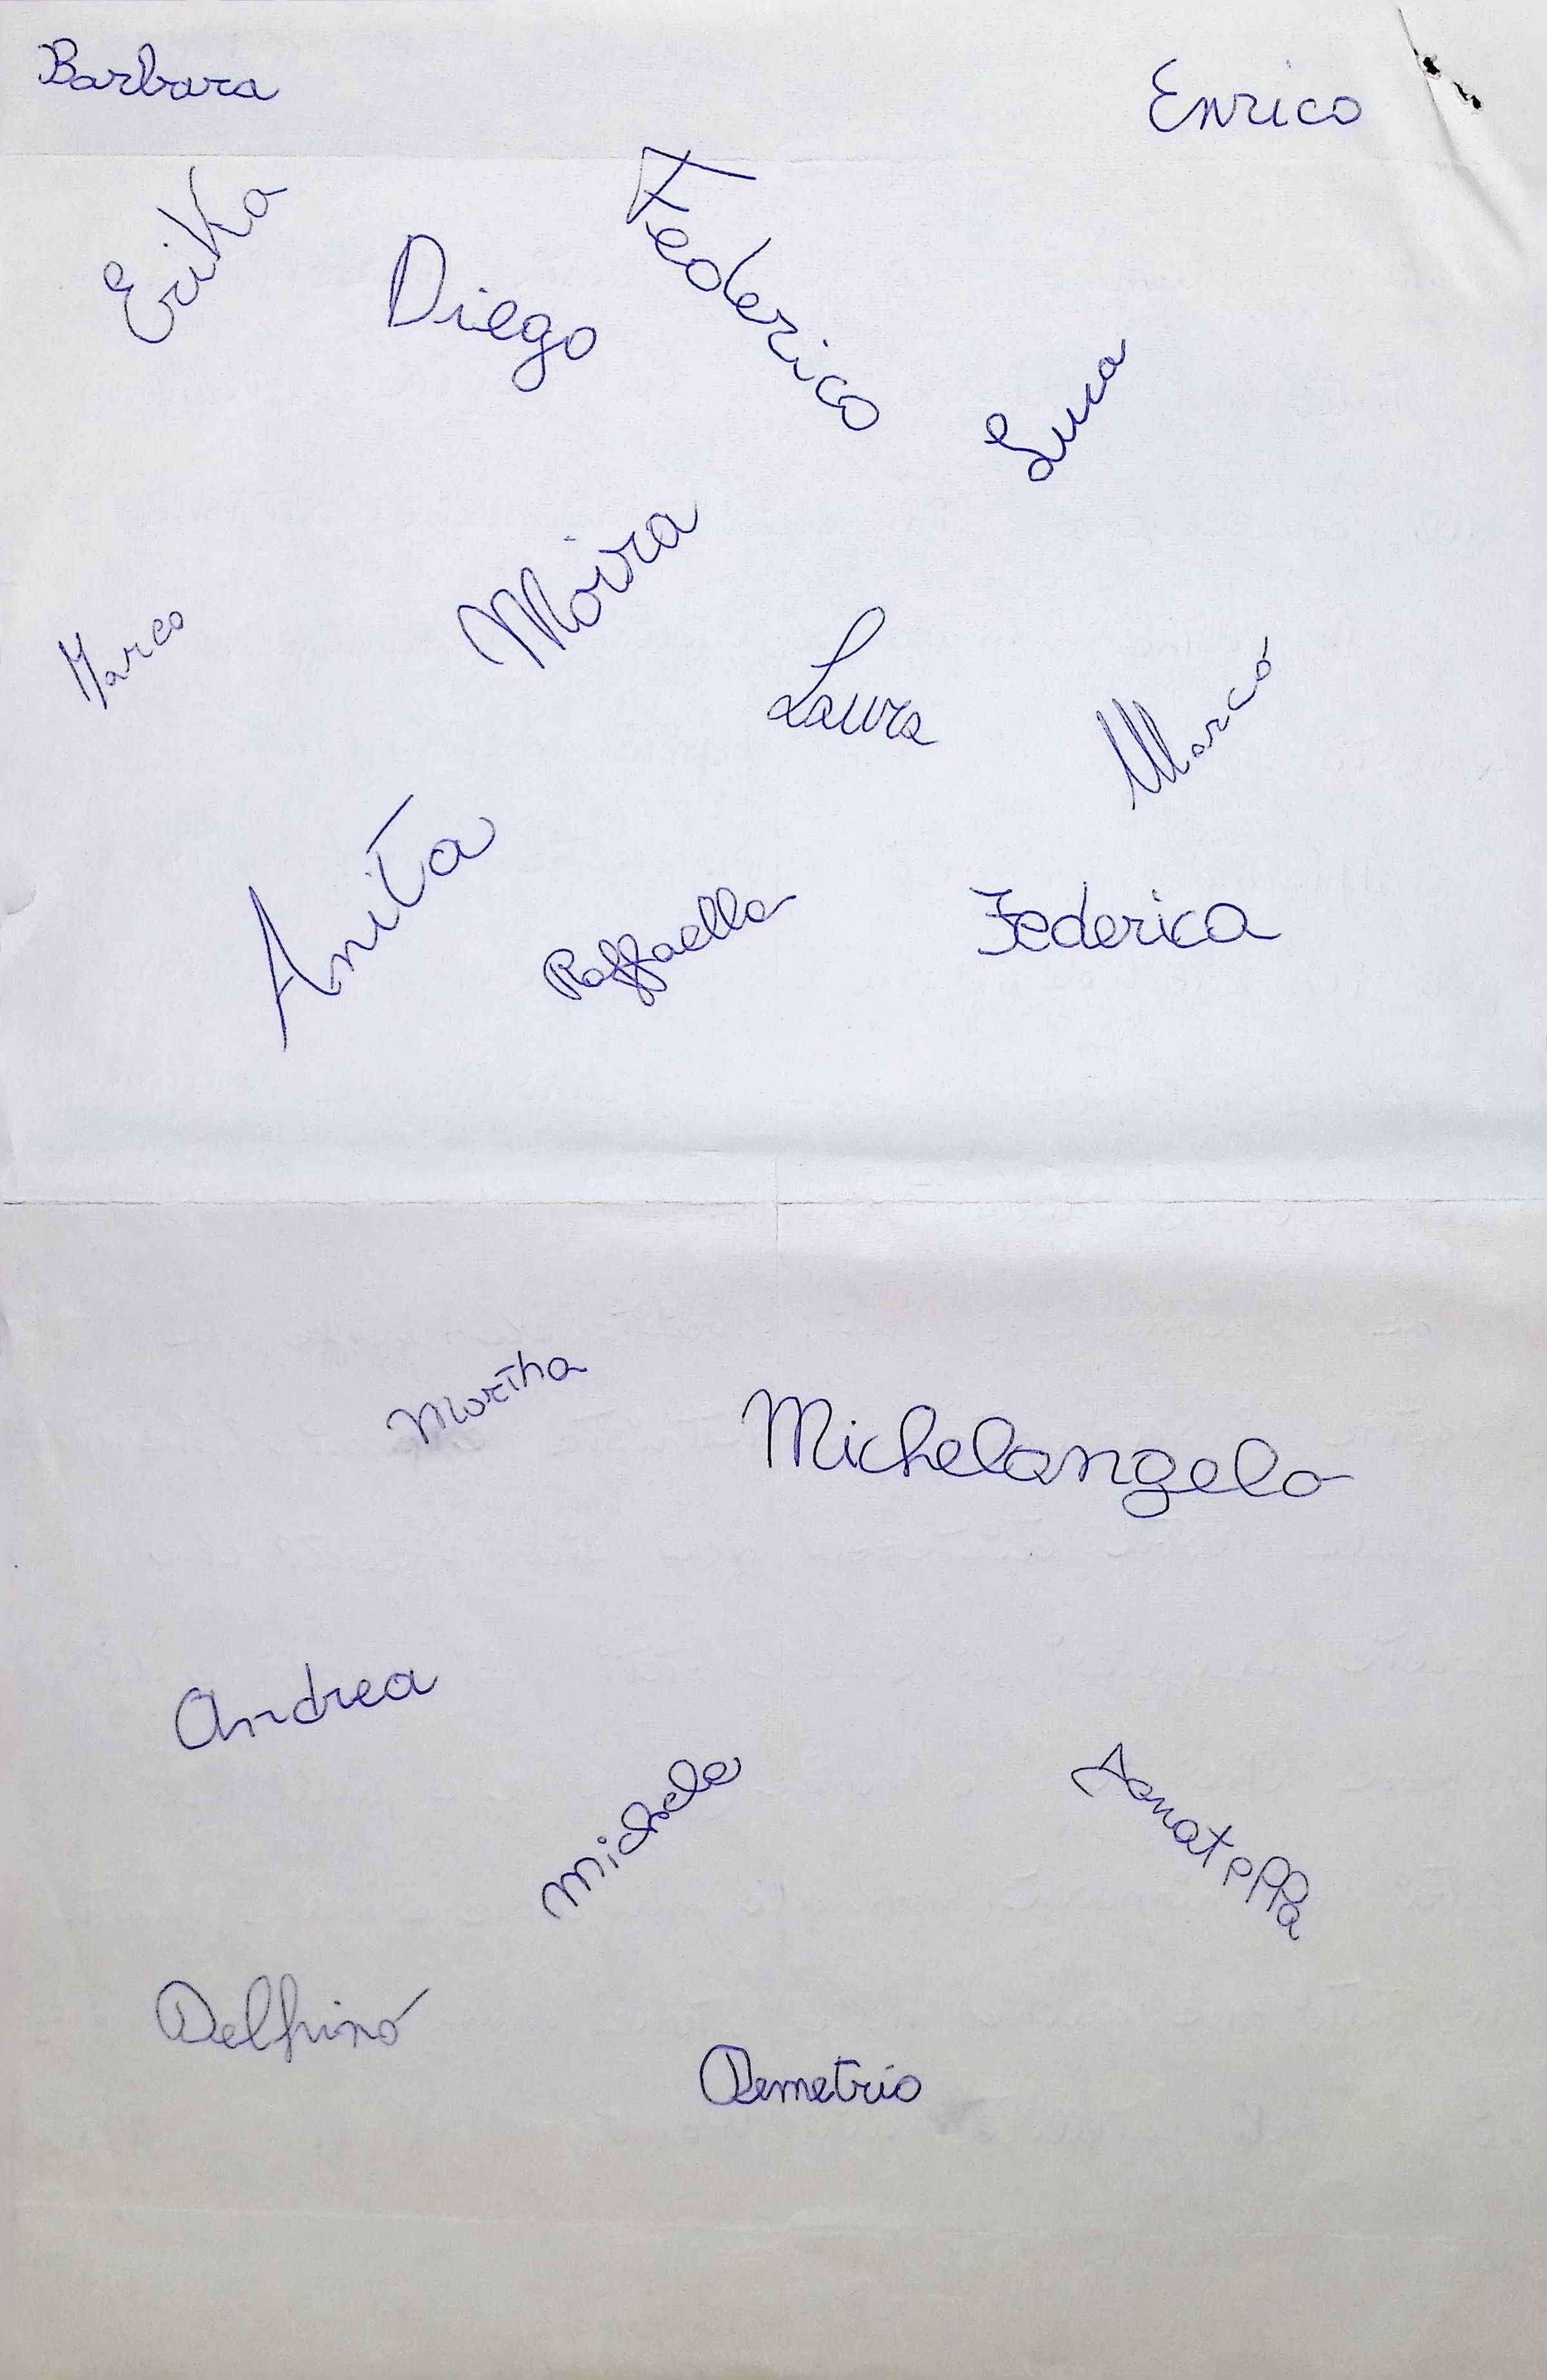 Barbara
Enrico
Erika
Diego
Federico
Luca
Marco
Moira
Laura
Marco
Anita
Raffaella
Federica
Martina
Michelangelo
Andrea
Michela
Donatella
Delfino
Demetrio